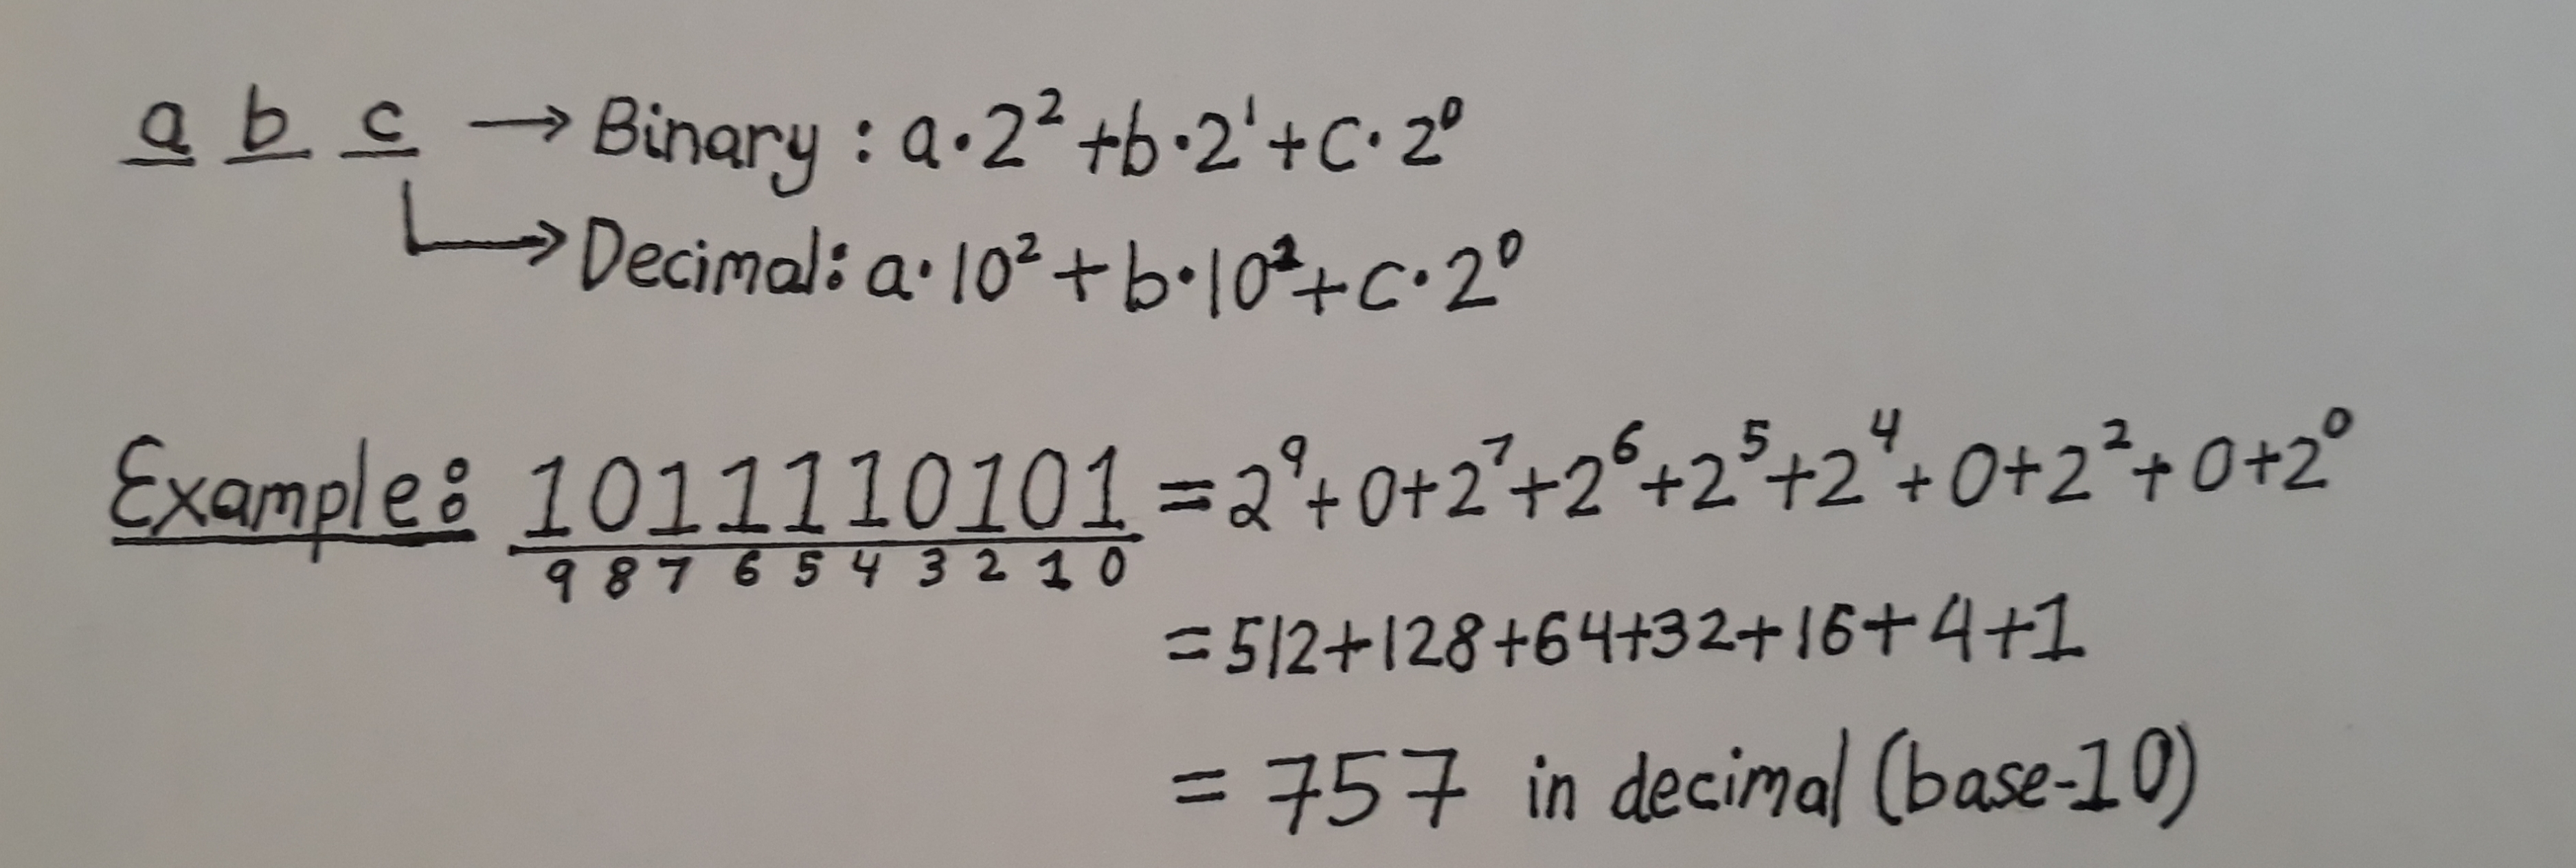 a b c → Binary : a·2² + b·2¹ + c·2⁰
→ Decimal: a·10² + b·10¹ + c·2⁰
Example: 1011110101 = 2⁹ + 0 + 2⁷ + 2⁶ + 2⁵ + 2⁴ + 0 + 2² + 0 + 2⁰
9 8 7 6 5 4 3 2 1 0
= 512 + 128 + 64 + 32 + 16 + 4 + 1
= 757 in decimal (base-10)